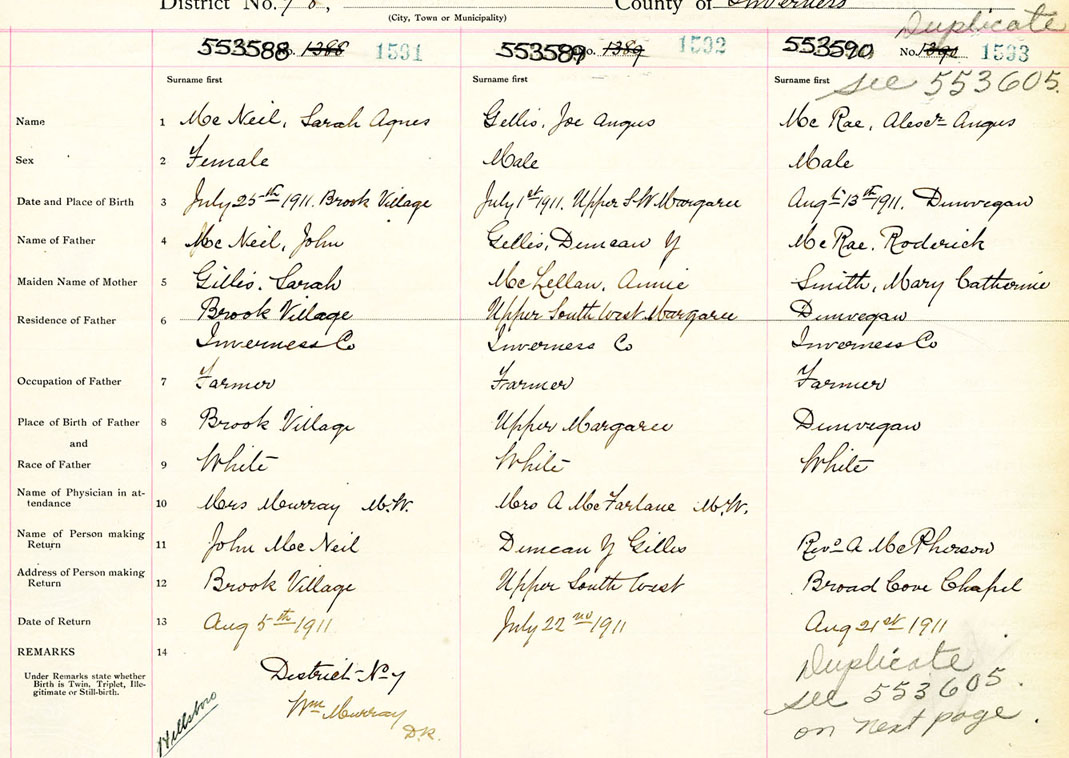 District No. 7 8, County of Inverness
(City, Town or Municipality)
Duplicate
553588 No. 1388 1531 553589 No. 1389 1532 553590 No. 1390 1533
Surname first Surname first Surname first see 553605.
Name 1 Mc Neil, Sarah Agnes Gillis, Joe Angus Mc Rae, Alexr Angus
Sex 2 Female Male Male
Date and Place of Birth 3 July 25th 1911. Brook Village July 1st 1911. Upper S.W Margaree Augt 13th 1911. Dunvegan
Name of Father 4 Mc Neil, John Gillis, Duncan Y Mc Rae. Roderick
Maiden Name of Mother 5 Gillis. Sarah Mc Lellan, Annie Smith, Mary Catherine
Residence of Father 6 Brook Village Upper South West Margaree Dunvegan
Inverness Co Inverness Co Inverness Co
Occupation of Father 7 Farmer Farmer Farmer
Place of Birth of Father 8 Brook Village Upper Margaree Dunvegan
and
Race of Father 9 White White White
Name of Physician in at-
tendance 10 Mrs Murray M.W. Mrs A McFarlane M.W.
Name of Person making
Return 11 John Mc Neil Duncan Y Gillis Revd A McPherson
Address of Person making
Return 12 Brook Village Upper South West Broad Cove Chapel
Date of Return 13 Aug 5th 1911 July 22nd 1911 Aug 21st 1911
REMARKS 14
Under Remarks state whether
Birth is Twin, Triplet, Ille-
gitimate or Still-birth.
District No 7
Wm Murray
D.R.
Hillsboro
Duplicate
see 553605.
on next page.